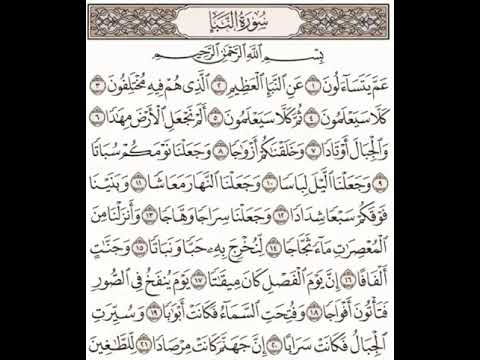 سُورَةُ النَّبَإِ
بِسْمِ اللَّهِ الرَّحْمَٰنِ الرَّحِيمِ
عَمَّ يَتَسَاءَلُونَ ١ عَنِ النَّبَإِ الْعَظِيمِ ٢ الَّذِي هُمْ فِيهِ مُخْتَلِفُونَ ٣
كَلَّا سَيَعْلَمُونَ ٤ ثُمَّ كَلَّا سَيَعْلَمُونَ ٥ أَلَمْ نَجْعَلِ الْأَرْضَ مِهَٰدًا ٦
وَالْجِبَالَ أَوْتَادًا ٧ وَخَلَقْنَٰكُمْ أَزْوَٰجًا ٨ وَجَعَلْنَا نَوْمَكُمْ سُبَاتًا
٩ وَجَعَلْنَا الَّيْلَ لِبَاسًا ١٠ وَجَعَلْنَا النَّهَارَ مَعَاشًا ١١ وَبَنَيْنَا
فَوْقَكُمْ سَبْعًا شِدَادًا ١٢ وَجَعَلْنَا سِرَاجًا وَهَّاجًا ١٣ وَأَنزَلْنَا مِنَ
الْمُعْصِرَٰتِ مَاءً ثَجَّاجًا ١٤ لِّنُخْرِجَ بِهِۦ حَبًّا وَنَبَاتًا ١٥ وَجَنَّٰتٍ
أَلْفَافًا ١٦ إِنَّ يَوْمَ الْفَصْلِ كَانَ مِيقَٰتًا ١٧ يَوْمَ يُنفَخُ فِي الصُّورِ
فَتَأْتُونَ أَفْوَاجًا ١٨ وَفُتِحَتِ السَّمَاءُ فَكَانَتْ أَبْوَٰبًا ١٩ وَسُيِّرَتِ
الْجِبَالُ فَكَانَتْ سَرَابًا ٢٠ إِنَّ جَهَنَّمَ كَانَتْ مِرْصَادًا ٢١ لِّلطَّٰغِينَ